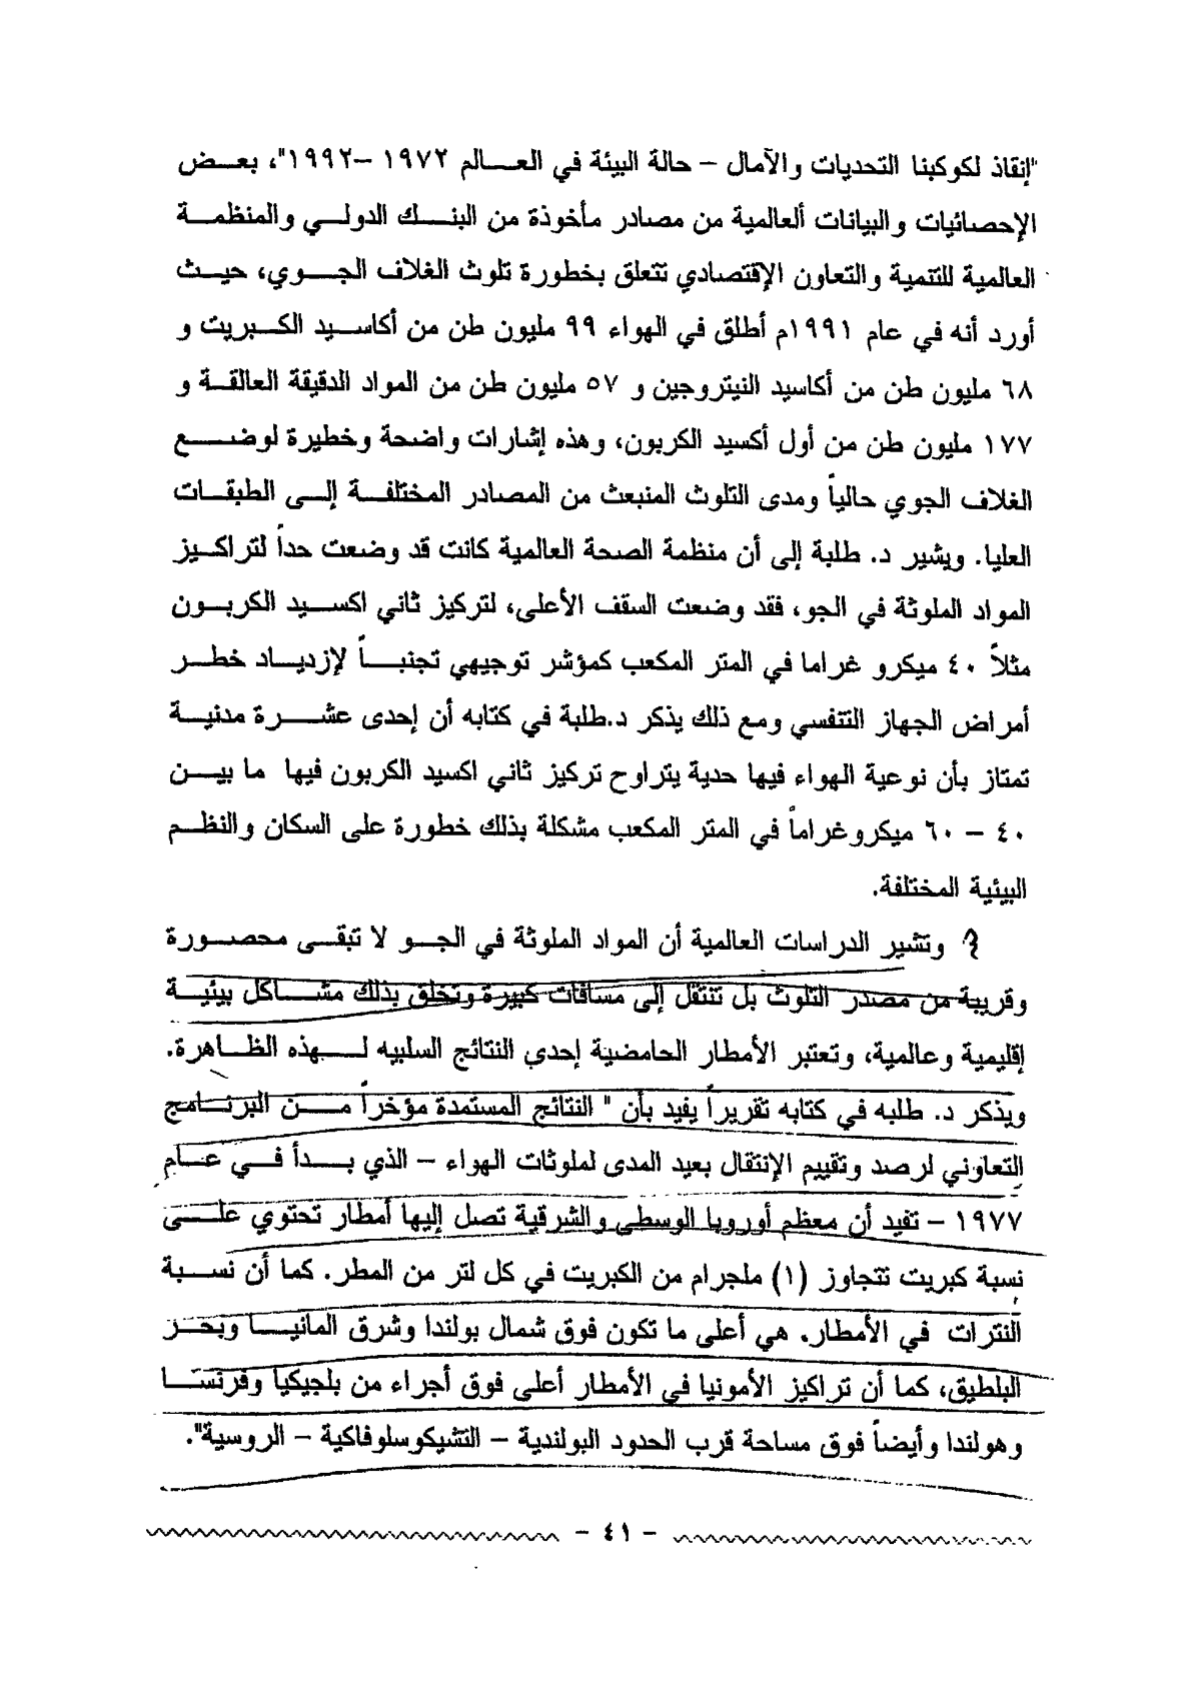 "إنقاذ لكوكبنا التحديات والآمال – حالة البيئة في العالم ١٩٧٢ –١٩٩٢"، بعض
الإحصائيات والبيانات ألعالمية من مصادر مأخوذة من البنك الدولي والمنظمة
العالمية للتنمية والتعاون الإقتصادي تتعلق بخطورة تلوث الغلاف الجوي، حيث
أورد أنه في عام ١٩٩١م أطلق في الهواء ٩٩ مليون طن من أكاسيد الكبريت و
٦٨ مليون طن من أكاسيد النيتروجين و ٥٧ مليون طن من المواد الدقيقة العالقة و
١٧٧ مليون طن من أول أكسيد الكربون، وهذه إشارات واضحة وخطيرة لوضع
الغلاف الجوي حالياً ومدى التلوث المنبعث من المصادر المختلفة إلى الطبقات
العليا. ويشير د. طلبة إلى أن منظمة الصحة العالمية كانت قد وضعت حداً لتراكيز
المواد الملوثة في الجو، فقد وضعت السقف الأعلى، لتركيز ثاني اكسيد الكربون
مثلاً ٤٠ ميكرو غراما في المتر المكعب كمؤشر توجيهي تجنباً لإزدياد خطر
أمراض الجهاز التنفسي ومع ذلك يذكر د.طلبة في كتابه أن إحدى عشرة مدنية
تمتاز بأن نوعية الهواء فيها حدية يتراوح تركيز ثاني اكسيد الكربون فيها ما بين
٤٠ – ٦٠ ميكروغراماً في المتر المكعب مشكلة بذلك خطورة على السكان والنظم
البيئية المختلفة.
وتشير الدراسات العالمية أن المواد الملوثة في الجو لا تبقى محصورة
وقريبة من مصدر التلوث بل تنتقل إلى مسافات كبيرة وتخلق بذلك مشاكل بيئية
إقليمية وعالمية، وتعتبر الأمطار الحامضية إحدي النتائج السلبيه لهذه الظاهرة.
ويذكر د. طلبه في كتابه تقريراً يفيد بأن " النتائج المستمدة مؤخراً من البرنامج
التعاوني لرصد وتقييم الإنتقال بعيد المدى لملوثات الهواء – الذي بدأ في عام
١٩٧٧ – تفيد أن معظم أوروبا الوسطى والشرقية تصل إليها أمطار تحتوي على
نسبة كبريت تتجاوز (١) ملجرام من الكبريت في كل لتر من المطر. كما أن نسبة
النترات في الأمطار. هي أعلى ما تكون فوق شمال بولندا وشرق المانيا وبحر
البلطيق، كما أن تراكيز الأمونيا في الأمطار أعلى فوق أجراء من بلجيكيا وفرنسا
وهولندا وأيضاً فوق مساحة قرب الحدود البولندية – التشيكوسلوفاكية – الروسية".
– ٤١ –